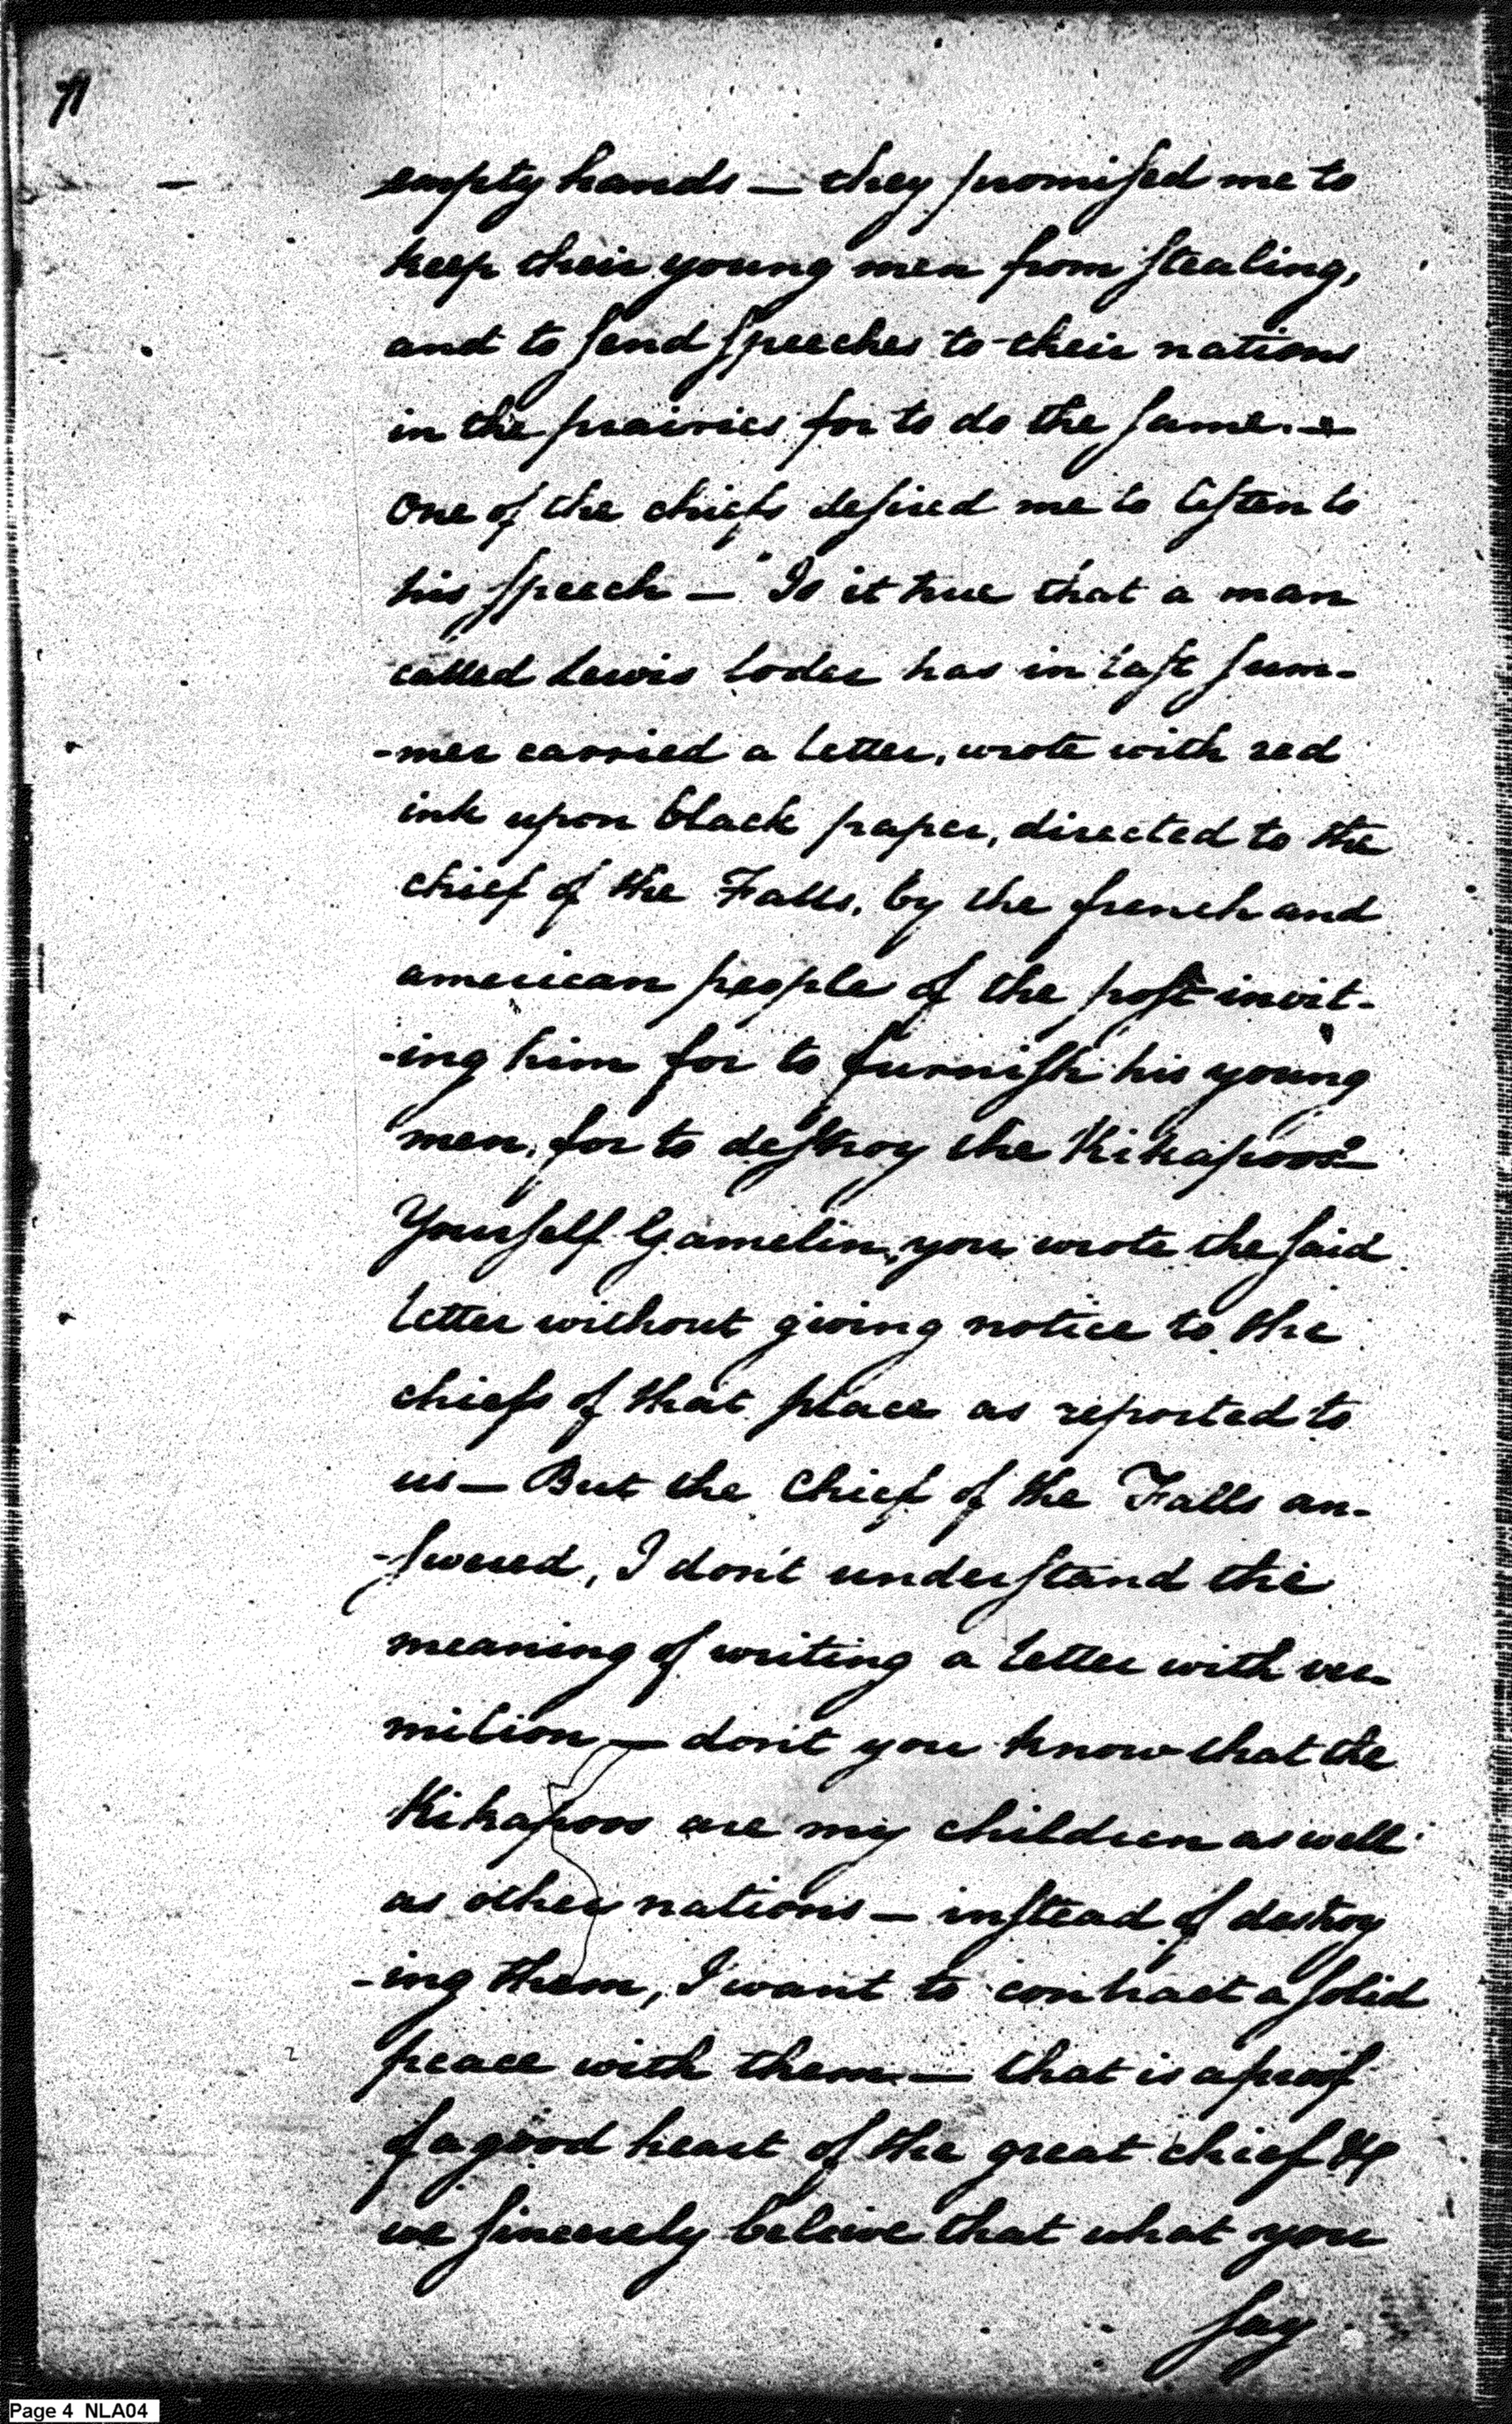 71
empty hands — they promised me to
keep their young men from stealing,
and to send speeches to their nations
in the prairies for to do the same. —
One of the chiefs desired me to listen to
his speech — "Is it true that a man
called Lewis Loder has in last sum-
-mer carried a letter, wrote with red
ink upon black paper, directed to the
chief of the Falls, by the french and
american people of the post invit-
-ing him for to furnish his young
men, for to destroy the Kikapoos? —
Yourself Gamelin, you wrote the said
letter without giving notice to the
chiefs of that place as reported to
us — But the Chief of the Falls an-
-swered, I don't understand the
meaning of writing a letter with ver-
milion — don't you know that the
Kikapoos are my children as well
as other nations — instead of destroy
-ing them, I want to contract a solid
peace with them — that is a proof
of a good heart of the great chief &
we sincerely beleive that what you
say
Page 4 NLA04